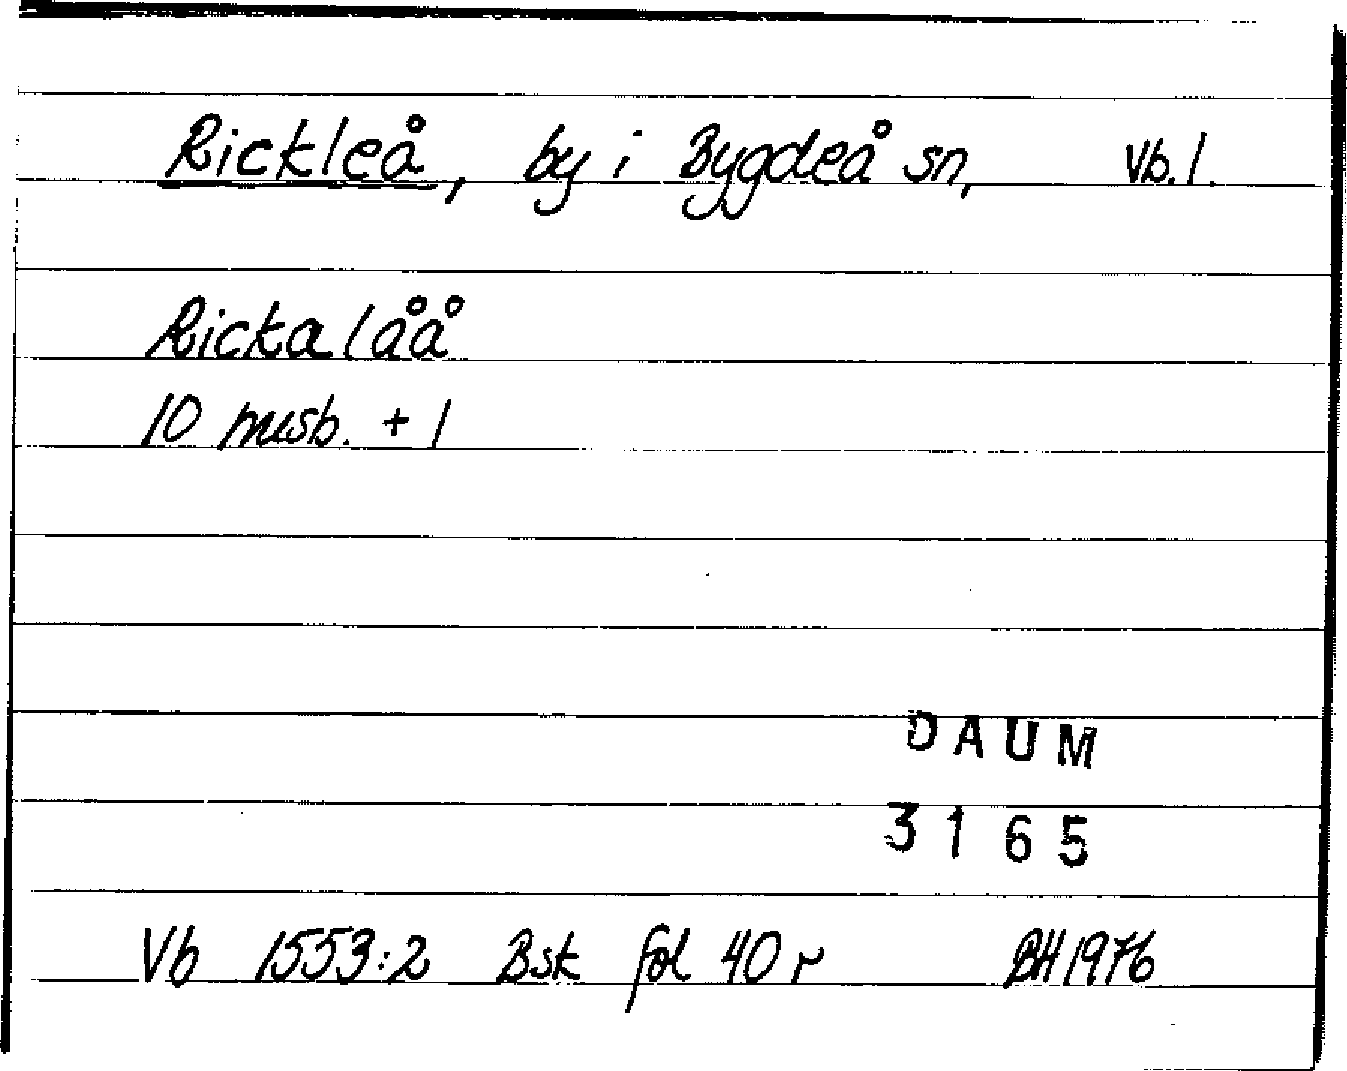 Rickleå, by i Bygdeå sn, Vb. l.
Rickalåå
10 nusb. + 1
DAUM
3165
Vb 1553:2 Bsk fol 40 r BH 1976